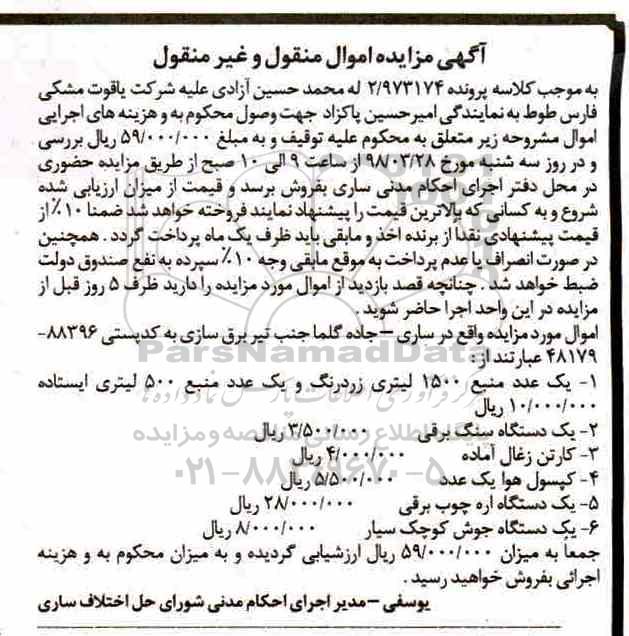 آگهی مزایده اموال منقول و غیر منقول
به موجب کلاسه پرونده ۲/۹۷۳۱۷۴ له محمد حسین آزادی علیه شرکت یاقوت مشکی
فارس طوط به نمایندگی امیرحسین پاکزاد جهت وصول محکوم به و هزینه های اجرایی
اموال مشروحه زیر متعلق به محکوم علیه توقیف و به مبلغ ۵۹/۰۰۰/۰۰۰ ریال بررسی
و در روز سه شنبه مورخ ۹۸/۰۳/۲۸ از ساعت ۹ الی ۱۰ صبح از طریق مزایده حضوری
در محل دفتر اجرای احکام مدنی ساری بفروش برسد و قیمت از میزان ارزیابی شده
شروع و به کسانی که بالاترین قیمت را پیشنهاد نمایند فروخته خواهد شد ضمنا ۱۰٪ از
قیمت پیشنهادی نقداً از برنده اخذ و مابقی باید ظرف یک ماه پرداخت گردد . همچنین
در صورت انصراف یا عدم پرداخت به موقع مابقی وجه ۱۰٪ سپرده به نفع صندوق دولت
ضبط خواهد شد . چنانچه قصد بازدید از اموال مورد مزایده را دارید ظرف ۵ روز قبل از
مزایده در این واحد اجرا حاضر شوید .
اموال مورد مزایده واقع در ساری – جاده گلما جنب تیر برق سازی به کدپستی ۸۸۳۹۶-
۴۸۱۷۹ عبارتند از :
ParsNamadData
۱- یک عدد منبع ۱۵۰۰ لیتری زردرنگ و یک عدد منبع ۵۰۰ لیتری ایستاده
۱۰/۰۰۰/۰۰۰ ریال
۲- یک دستگاه سنگ برقی ۳/۵۰۰/۰۰۰ ریال
پایگاه اطلاع رسانی مناقصه و مزایده
۳- کارتن زغال آماده ۴/۰۰۰/۰۰۰ ریال
۰۲۱-۸۸۳۴۹۶۷۰-۵
۴- کپسول هوا یک عدد ۵/۵۰۰/۰۰۰ ریال
۵- یک دستگاه اره چوب برقی ۲۸/۰۰۰/۰۰۰ ریال
۶- یک دستگاه جوش کوچک سیار ۸/۰۰۰/۰۰۰ ریال
جمعاً به میزان ۵۹/۰۰۰/۰۰۰ ریال ارزشیابی گردیده و به میزان محکوم به و هزینه
اجرائی بفروش خواهید رسید .
یوسفی – مدیر اجرای احکام مدنی شورای حل اختلاف ساری